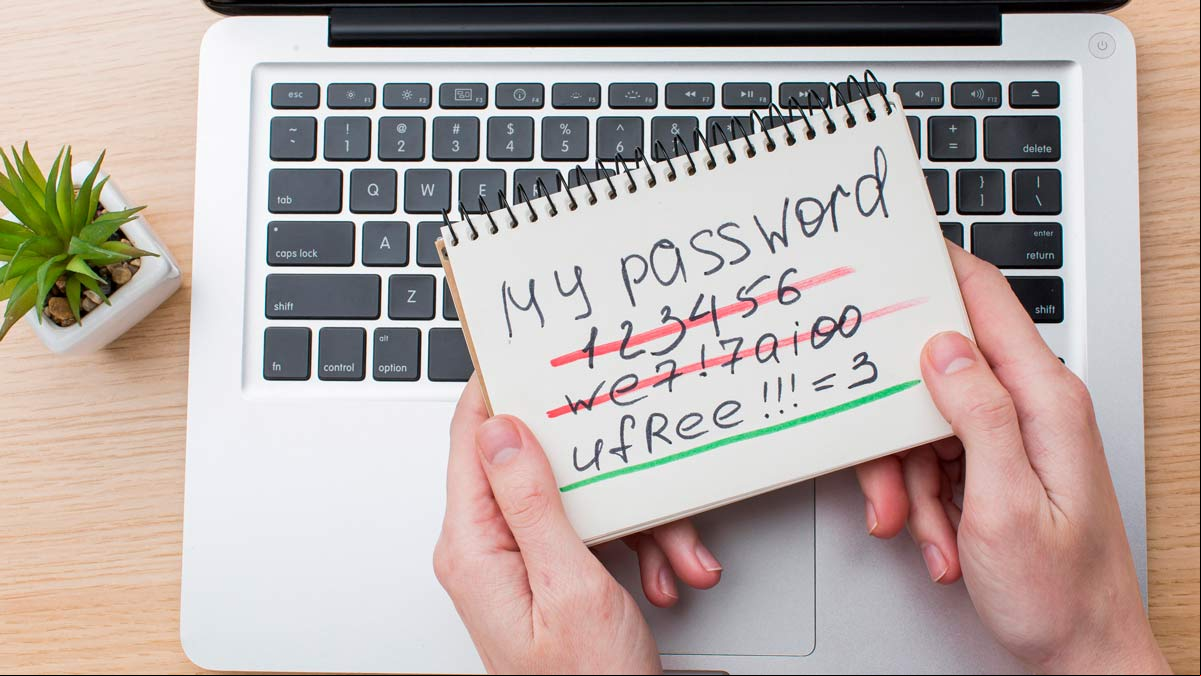 esc F1 F2 F3 F4 F5 F6 F7 F8 F11 F12
~ ! 1 @ 2 # 3 $ 4 % 5 ^ 6 & + = delete
tab Q W E } ] | \
caps lock A enter return
shift Z shift
fn control alt option
My password
123456
we7!7aioo
ufRee!!!=3